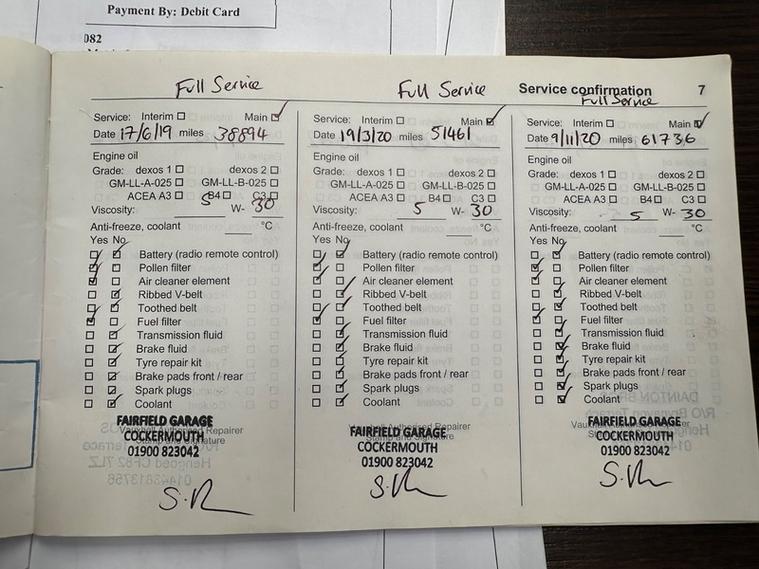 Payment By: Debit Card
082
Service confirmation 7
Full Service
Service: Interim Main
Date 17/6/19 miles 38894
Engine oil
Grade: dexos 1 dexos 2
GM-LL-A-025 GM-LL-B-025
ACEA A3 B4 C3
Viscosity: 5 W- 30
Anti-freeze, coolant °C
Yes No
Battery (radio remote control)
Pollen filter
Air cleaner element
Ribbed V-belt
Toothed belt
Fuel filter
Transmission fluid
Brake fluid
Tyre repair kit
Brake pads front / rear
Spark plugs
Coolant
Vauxhall Authorised Repairer
Stamp and Signature
FAIRFIELD GARAGE
COCKERMOUTH
01900 823042
Full Service
Service: Interim Main
Date 19/3/20 miles 51461
Engine oil
Grade: dexos 1 dexos 2
GM-LL-A-025 GM-LL-B-025
ACEA A3 B4 C3
Viscosity: 5 W- 30
Anti-freeze, coolant °C
Yes No
Battery (radio remote control)
Pollen filter
Air cleaner element
Ribbed V-belt
Toothed belt
Fuel filter
Transmission fluid
Brake fluid
Tyre repair kit
Brake pads front / rear
Spark plugs
Coolant
Vauxhall Authorised Repairer
Stamp and Signature
FAIRFIELD GARAGE
COCKERMOUTH
01900 823042
Full Service
Service: Interim Main
Date 9/11/20 miles 61736
Engine oil
Grade: dexos 1 dexos 2
GM-LL-A-025 GM-LL-B-025
ACEA A3 B4 C3
Viscosity: 5 W- 30
Anti-freeze, coolant °C
Yes No
Battery (radio remote control)
Pollen filter
Air cleaner element
Ribbed V-belt
Toothed belt
Fuel filter
Transmission fluid
Brake fluid
Tyre repair kit
Brake pads front / rear
Spark plugs
Coolant
Vauxhall Authorised Repairer
Stamp and Signature
FAIRFIELD GARAGE
COCKERMOUTH
01900 823042